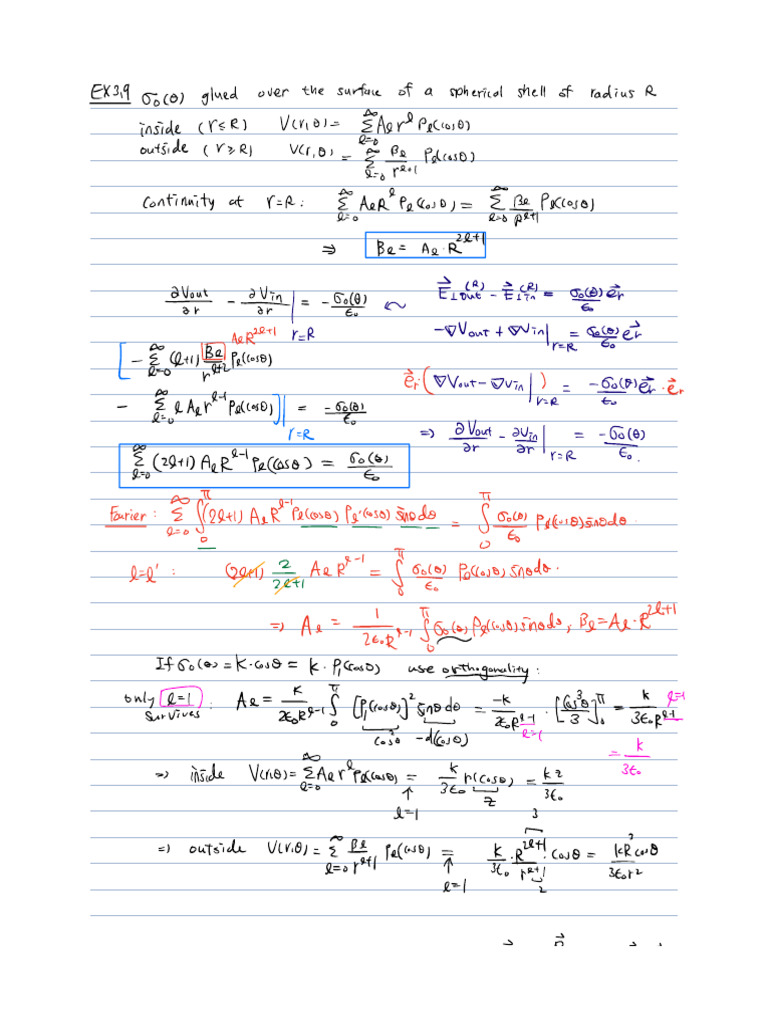 EX3,9 σ₀(θ) glued over the surface of a spherical shell of radius R
inside (r ≤ R) V(r,θ) = Σ_{ℓ=0}^{∞} A_ℓ r^ℓ P_ℓ(cosθ)
outside (r ≥ R) V(r,θ) = Σ_{ℓ=0}^{∞} B_ℓ/r^{ℓ+1} P_ℓ(cosθ)
Continuity at r=R: Σ_{ℓ=0}^{∞} A_ℓ R^ℓ P_ℓ(cosθ) = Σ_{ℓ=0}^{∞} B_ℓ/R^{ℓ+1} P_ℓ(cosθ)
⇒ B_ℓ = A_ℓ · R^{2ℓ+1}
∂V_out/∂r − ∂V_in/∂r |_{r=R} = −σ₀(θ)/ε₀
E⃗_{⊥out}^{(R)} − E⃗_{⊥in}^{(R)} = σ₀(θ)/ε₀ e⃗_r
−∇V_out + ∇V_in |_{r=R} = σ₀(θ)/ε₀ e⃗_r
e⃗_r · (∇V_out − ∇V_in |)_{r=R} = −σ₀(θ)/ε₀ e⃗_r · e⃗_r
⇒ ∂V_out/∂r − ∂V_in/∂r |_{r=R} = −σ₀(θ)/ε₀.
A_ℓ R^{2ℓ+1}
[ − Σ_{ℓ=0}^{∞} (ℓ+1) B_ℓ/r^{ℓ+2} P_ℓ(cosθ)
− Σ_{ℓ=0}^{∞} ℓ A_ℓ r^{ℓ−1} P_ℓ(cosθ) ]|_{r=R} = −σ₀(θ)/ε₀
Σ_{ℓ=0}^{∞} (2ℓ+1) A_ℓ R^{ℓ−1} P_ℓ(cosθ) = σ₀(θ)/ε₀
Fourier: Σ_{ℓ=0}^{∞} ∫_0^π (2ℓ+1) A_ℓ R^{ℓ−1} P_ℓ(cosθ) P_ℓ'(cosθ) sinθdθ = ∫_0^π σ₀(θ)/ε₀ P_ℓ'(cosθ) sinθdθ.
ℓ=ℓ' : (2ℓ+1) 2/(2ℓ+1) A_ℓ R^{ℓ−1} = ∫_0^π σ₀(θ)/ε₀ P_ℓ(cosθ) sinθdθ.
⇒ A_ℓ = 1/(2ε₀R^{ℓ−1}) ∫_0^π σ₀(θ) P_ℓ(cosθ) sinθdθ, B_ℓ = A_ℓ · R^{2ℓ+1}
If σ₀(θ) = k·cosθ = k·P₁(cosθ) use orthogonality:
only ℓ=1 survives : A_ℓ = k/(2ε₀R^{ℓ−1}) ∫_0^π [P₁(cosθ)]² sinθdθ = −k/(2ε₀R^{ℓ−1}) · [cos³θ/3]_0^π = k/(3ε₀R^{ℓ−1}) ℓ=1
cos²θ −d(cosθ) ℓ=1 = k/3ε₀
⇒ inside V(r,θ) = Σ_{ℓ=0}^{∞} A_ℓ r^ℓ P_ℓ(cosθ) = k/3ε₀ r(cosθ) = kz/3ε₀
ℓ=1 z 3
⇒ outside V(r,θ) = Σ_{ℓ=0}^{∞} B_ℓ/r^{ℓ+1} P_ℓ(cosθ) = k/3ε₀ · R^{2ℓ+1}/r^{ℓ+1} · cosθ = kR³cosθ/3ε₀r²
ℓ=1 2